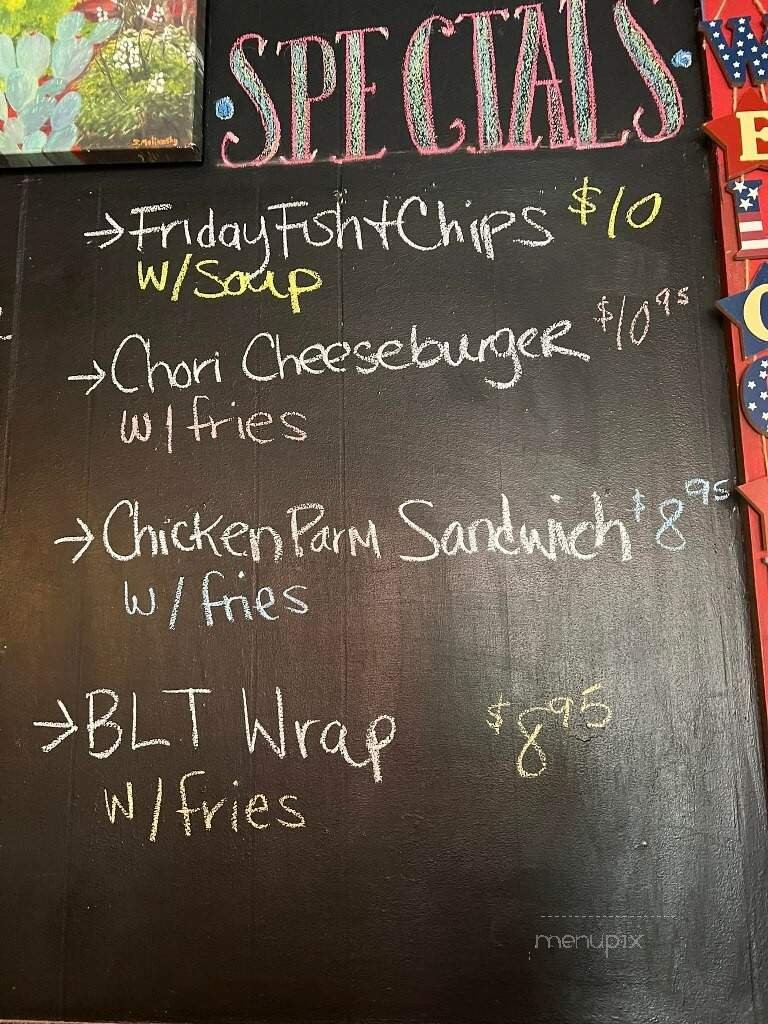 SPECIALS
→Friday Fish + Chips $10
W/Soup
→Chori Cheeseburger $10 95
w/fries
→Chicken Parm Sandwich $8 95
w/fries
→BLT Wrap $8 95
w/fries
menupix